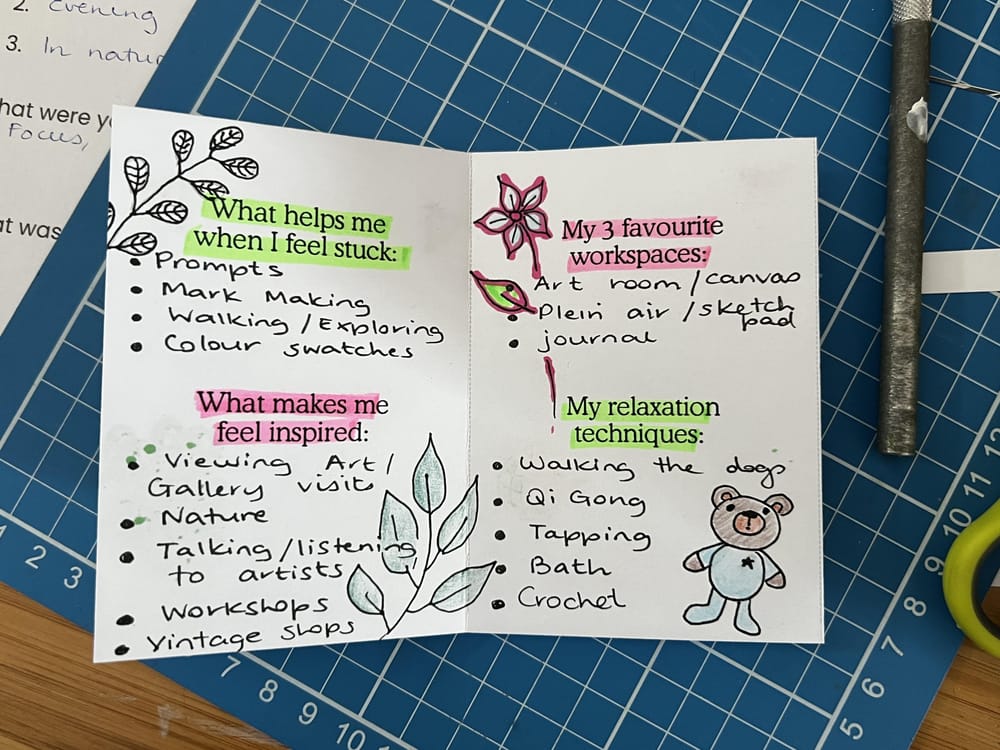 2. Evening
3. In
hat were
Focus,
at was
What helps me
when I feel stuck:
• Prompts
• Mark Making
• Walking / Exploring
• Colour swatches
What makes me
feel inspired:
• Viewing Art /
Gallery visit
• Nature
• Talking /listening
to artists
• Workshops
• Vintage shops
My 3 favourite
workspaces:
• Art room /canvas
• Plein air /sketch
pad
• journal
My relaxation
techniques:
• Walking the dogs
• Qi Gong
• Tapping
• Bath
• Crochet
1 2 3
7 8 9 10
5 6 7 8 9 10 11 12